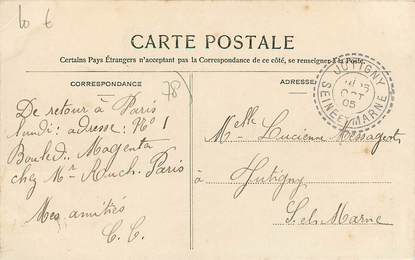 10 €
CARTE POSTALE
Certains Pays Étrangers n'acceptant pas la Correspondance de ce côté, se renseigner à la Poste.
CORRESPONDANCE
ADRESSE
78
JUTIGNY
OCT
05
SEINE ET MARNE
De retour à Paris
lundi: adresse: No 1
Bouled. Magenta
chez Mr Paris
Mes amitiés
C. C.
Melle Lucienne Messageot
à Jutigny
S. et Marne